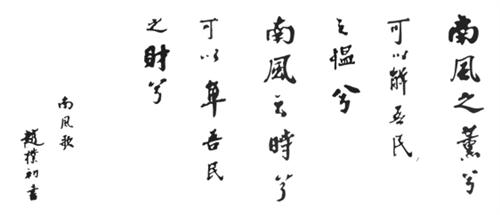 南風之薰兮
可以解吾民
之愠兮
南風之時兮
可以阜吾民
之財兮
南風歌
趙樸初書